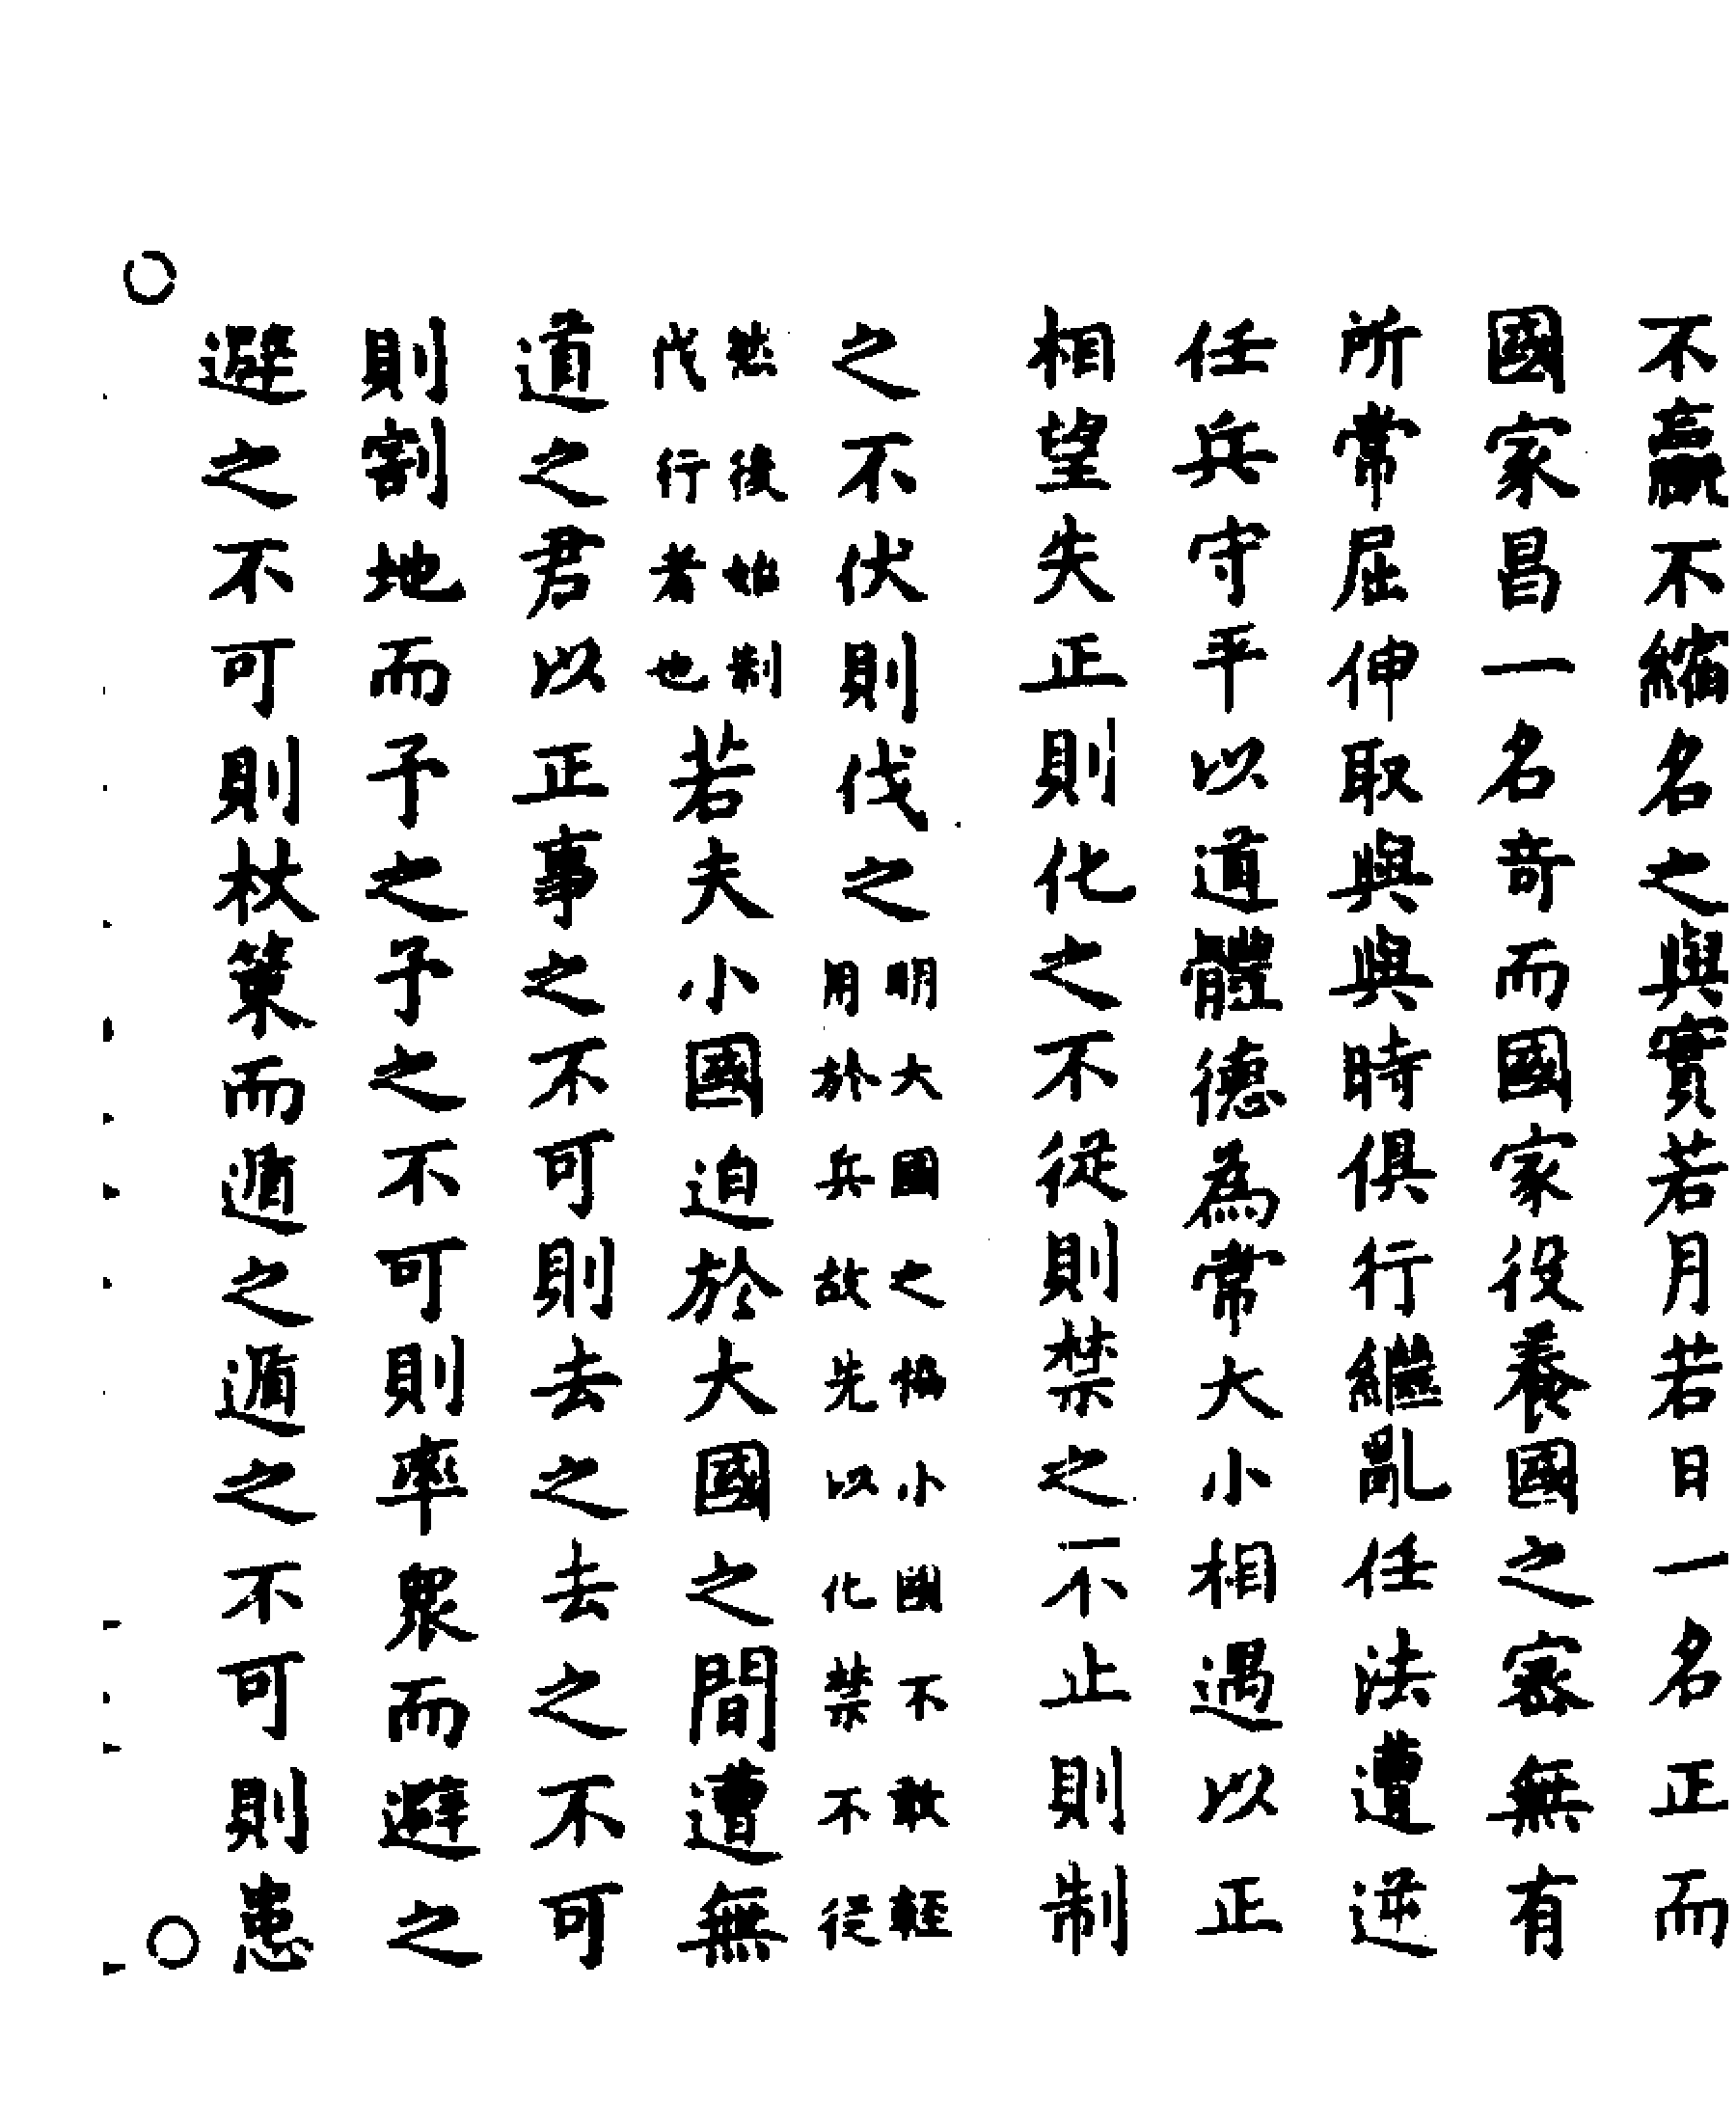 不贏不縮名之與實若月若日一名正而
國家昌一名奇而國家役養國之密無有
所常屈伸取與與時俱行繼亂任法遭逆
任兵守平以道體德為常大小相遇以正
相望失正則化之不從則禁之不止則制
之不伏則伐之明大國之恊小國不敢輕
用於兵故先以化禁不從
然後始制
伐行者也若夫小國迫於大國之間遭無
道之君以正事之不可則去之去之不可
則割地而予之予之不可則率衆而避之
避之不可則杖策而遁之遁之不可則患